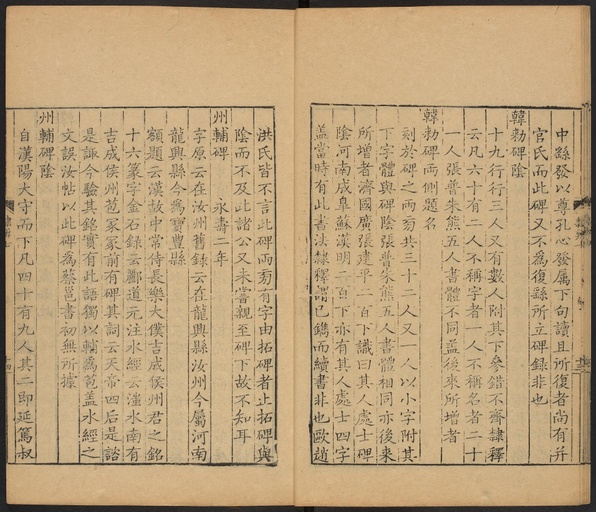 中繇發以尊孔心發属下句讀且所復者尚有并
官氏而此碑又不為復繇所立碑録非也
韓勑碑陰
十九行行三人又有數人附其下參錯不齊隷釋
云凡六十有二人不稱字者一人不稱名者二十
一人張普朱熊五人書體不同盖後來所增者
韓勑碑两側題名
刻於碑之两旁共三十二人又一人以小字附其
下字體與碑陰張普朱熊五人書體相同亦後來
所增者濟國廣張建平二百下識曰其人處士碑
陰河南成臯蘇漢明二百下亦有其人處士四字
盖當時有此書法隷釋謂已鐫而續書非也歐趙
洪氏皆不言此碑两旁有字由拓碑者止拓碑與
陰而不及此諸公又未嘗親至碑下故不知耳
州輔碑 永壽二年
字原云在汝州舊録云在龍興縣汝州今屬河南
龍興縣今為寶豊縣
額題云漢故中常侍長樂大僕吉成侯州君之銘
十六篆字金石録云酈道元注水經云滍水南有
吉成侯州苞冢冢前有碑其詞云天帝四后是諮
是諏今驗其銘實有此語獨以輔為苞盖水經之
文誤汝帖以此碑為蔡邕書初無所據
州輔碑陰
自漢陽大守而下凡四十有九人其二即延篤叔